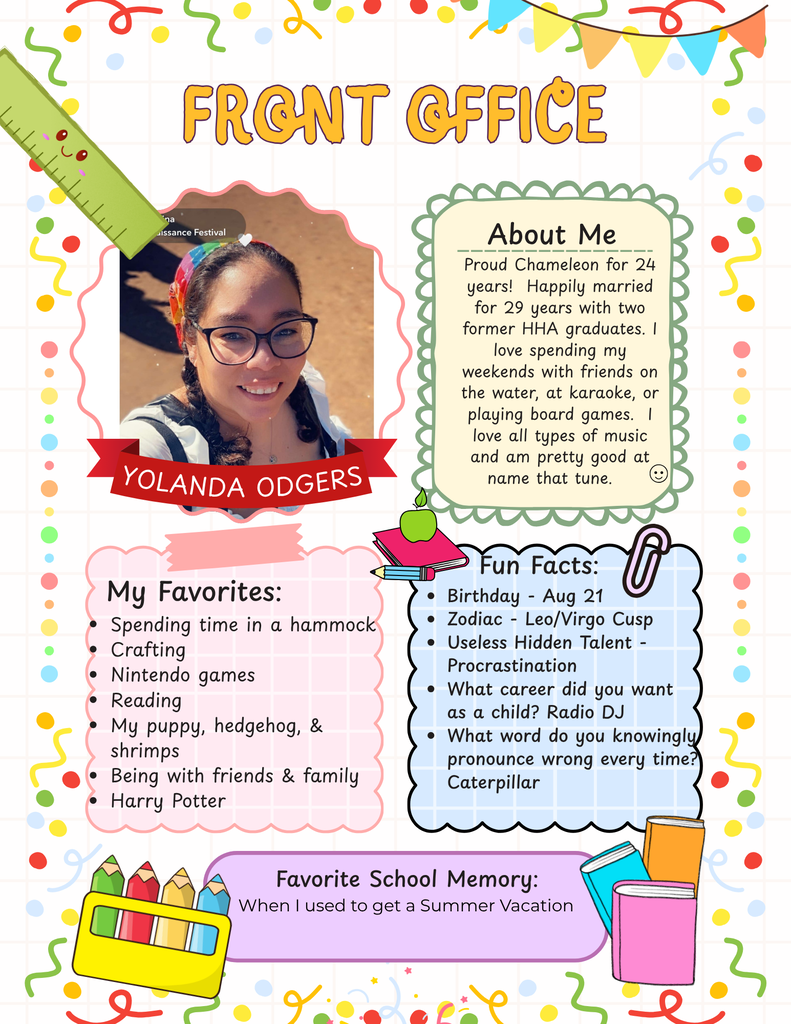 FRONT OFFICE
issance Festival
YOLANDA ODGERS
About Me
Proud Chameleon for 24
years! Happily married
for 29 years with two
former HHA graduates. I
love spending my
weekends with friends on
the water, at karaoke, or
playing board games. I
love all types of music
and am pretty good at
name that tune.
My Favorites:
• Spending time in a hammock
• Crafting
• Nintendo games
• Reading
• My puppy, hedgehog, &
shrimps
• Being with friends & family
• Harry Potter
Fun Facts:
• Birthday - Aug 21
• Zodiac - Leo/Virgo Cusp
• Useless Hidden Talent -
Procrastination
• What career did you want
as a child? Radio DJ
• What word do you knowingly
pronounce wrong every time?
Caterpillar
Favorite School Memory:
When I used to get a Summer Vacation